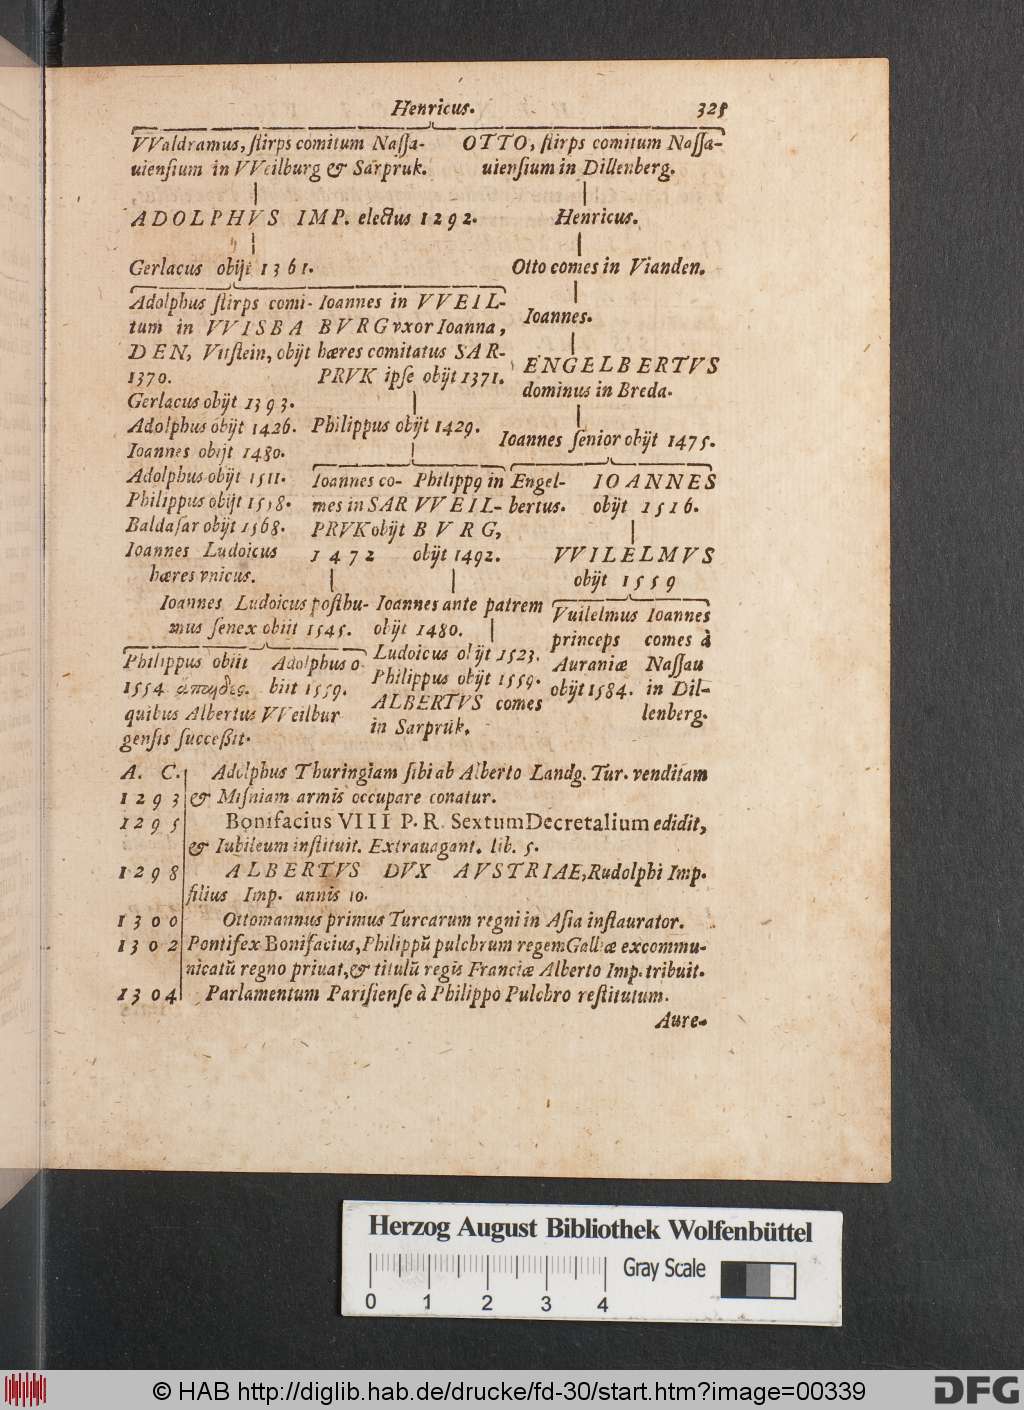 Henricus. 325
VValdramus, ſtirps comitum Naſſa-
uienſium in VVeilburg & Sarpruk.
OTTO, ſtirps comitum Naſſa-
uienſium in Dillenberg.
ADOLPHVS IMP. electus 1292.
Henricus.
Gerlacus obijt 1361.
Otto comes in Vianden.
Adolphus ſtirps comi-
tum in VVISBA
DEN, Vitſtein, obijt
1370.
Gerlacus obijt 1393.
Adolphus obijt 1426.
Ioannes obijt 1480.
Adolphus obijt 1511.
Philippus obijt 1558.
Baldaſar obijt 1568.
Ioannes Ludoicus
hæres vnicus.
Ioannes in VVEIL-
BVRG vxor Ioanna,
hæres comitatus SAR-
PRVK ipſe obijt 1371.
Philippus obijt 1429.
Ioannes.
ENGELBERTVS
dominus in Breda.
Ioannes ſenior obijt 1475.
Ioannes co-
mes in SAR
PRVK obijt
1472
Philippꝰ in
VVEIL-
BVRG,
obijt 1492.
Engel-
bertus.
IOANNES
obijt 1516.
VVILELMVS
obijt 1559
Ioannes Ludoicus poſthu-
mus ſenex obiit 1545.
Ioannes ante patrem
obijt 1480.
Ludoicus obijt 1523.
Philippus obijt 1559.
ALBERTVS comes
in Sarpruk.
Vuilelmus
princeps
Auraniæ
obijt 1584.
Ioannes
comes à
Naſſau
in Dil-
lenberg.
Philippus obiit
1554
quibus Albertus VVeilbur
genſis ſucceßit.
Adolphus o-
biit 1559.
A. C. Adolphus Thuringiam ſibi ab Alberto Landg. Tur. venditam
1293 & Miſniam armis occupare conatur.
1295 Bonifacius VIII P. R. Sextum Decretalium edidit,
& Iubileum inſtituit. Extrauagant. lib. 5.
1298 ALBERTVS DVX AVSTRIAE, Rudolphi Imp.
filius Imp. annis 10.
1300 Ottomannus primus Turcarum regni in Aſia inſtaurator.
1302 Pontifex Bonifacius, Philippū pulchrum regem Galliæ excommu-
nicatū regno priuat, & titulū regis Franciæ Alberto Imp. tribuit.
1304 Parlamentum Pariſienſe à Philippo Pulchro reſtitutum.
Aure-
Herzog August Bibliothek Wolfenbüttel
Gray Scale
0 1 2 3 4
© HAB http://diglib.hab.de/drucke/fd-30/start.htm?image=00339
DFG